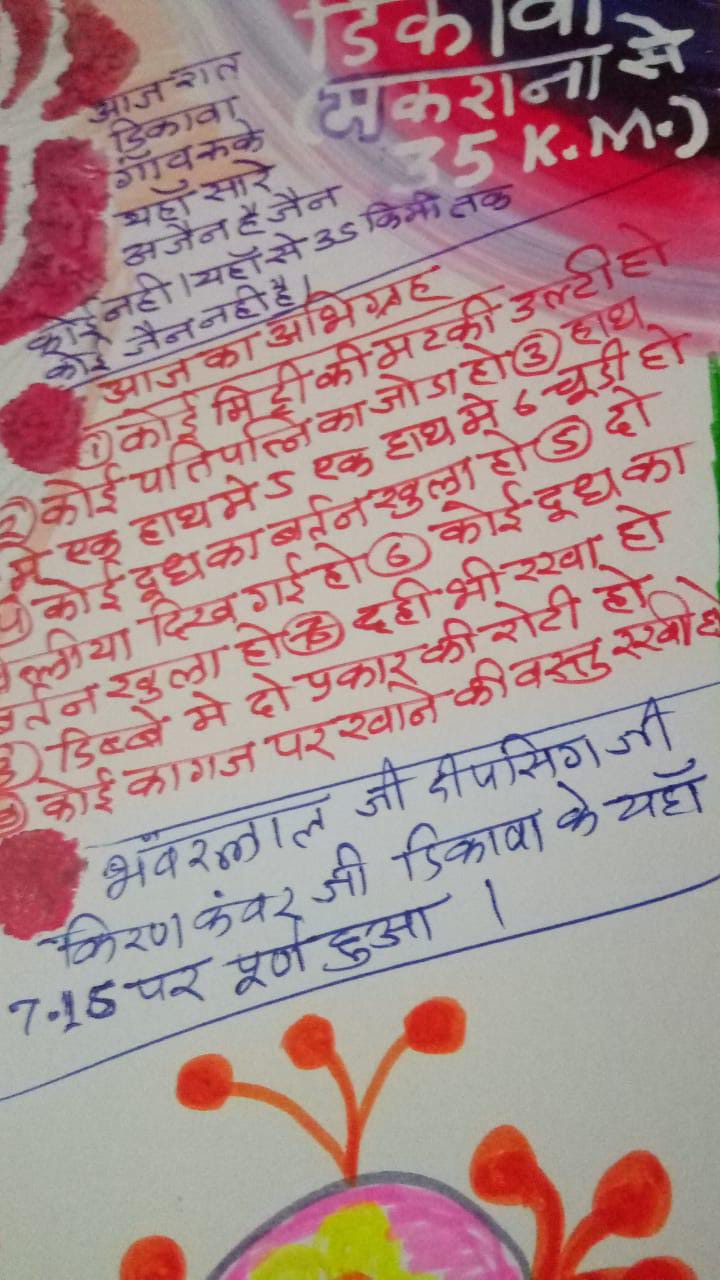 डिकावा
(मकराना से
35 K.M.)
आज रात
डिकावा
गाँव रूके
यहाँ सारे
अजैन है जैन
कोई नही । यहाँ से 35 किमी तक
कोई जैन नही है।
आज का अभिग्रह
① कोई मिट्टी की मटकी उल्टी हो
② कोई पतिपत्नि का जोडा हो ③ हाथ
मे एक हाथ मे 5 एक हाथ मे 6 चूडी हो
④ कोई दूध का बर्तन खुला हो ⑤ दो
बिल्लीया दिख गई हो ⑥ कोई दूध का
बर्तन खुला हो ⑦ दही भी रखा हो
⑧ डिब्बे मे दो प्रकार की रोटी हो
⑨ कोई कागज पर खाने की वस्तु रखी हो
भँवरलाल जी दीपसिंग जी
किरण कंवर जी डिकावा के यहाँ
7.15 पर पूर्ण हुआ ।